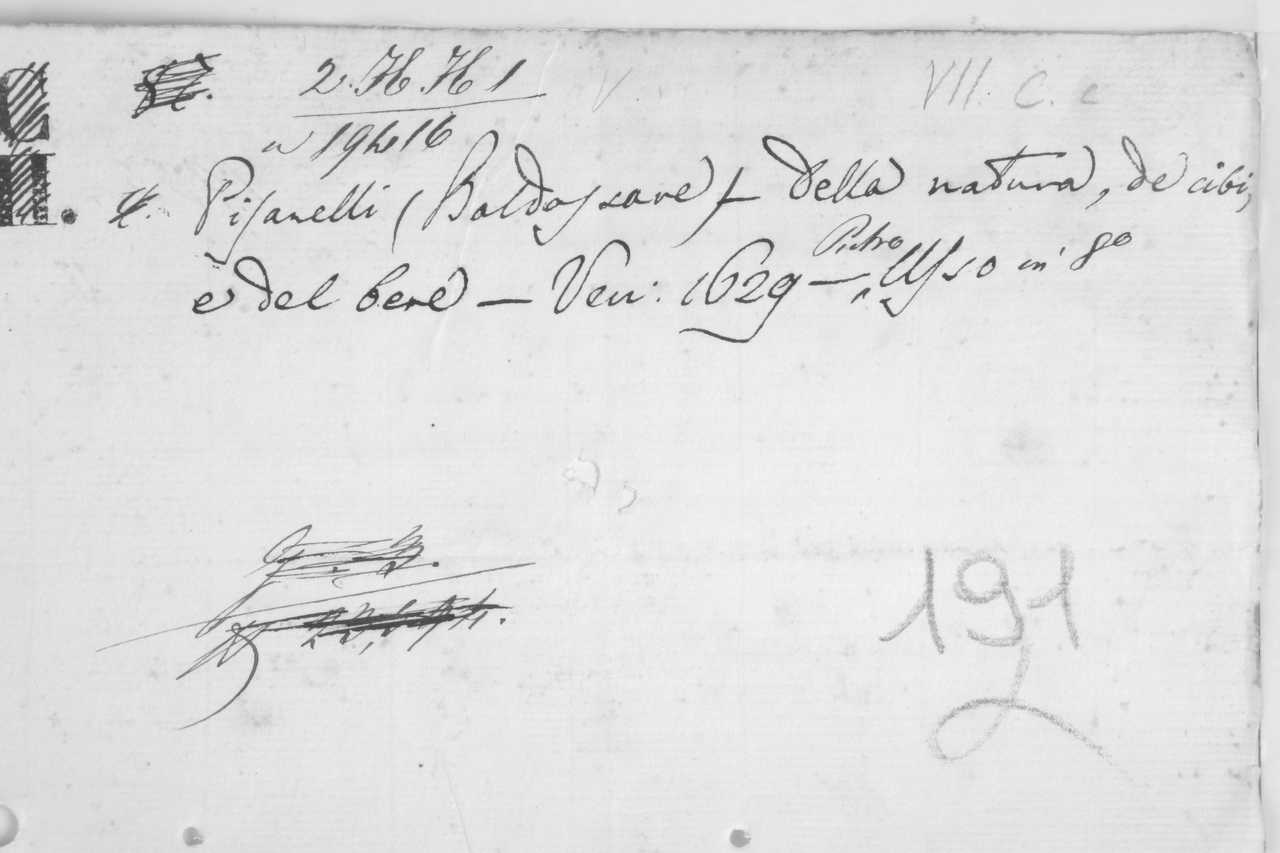 2. H. H 1
VII. C. c
a 19416
Pisanelli (Baldassare) — Della natura, de cibi,
e del bere — Ven: 1629 — Pietro Usso in 8º
191